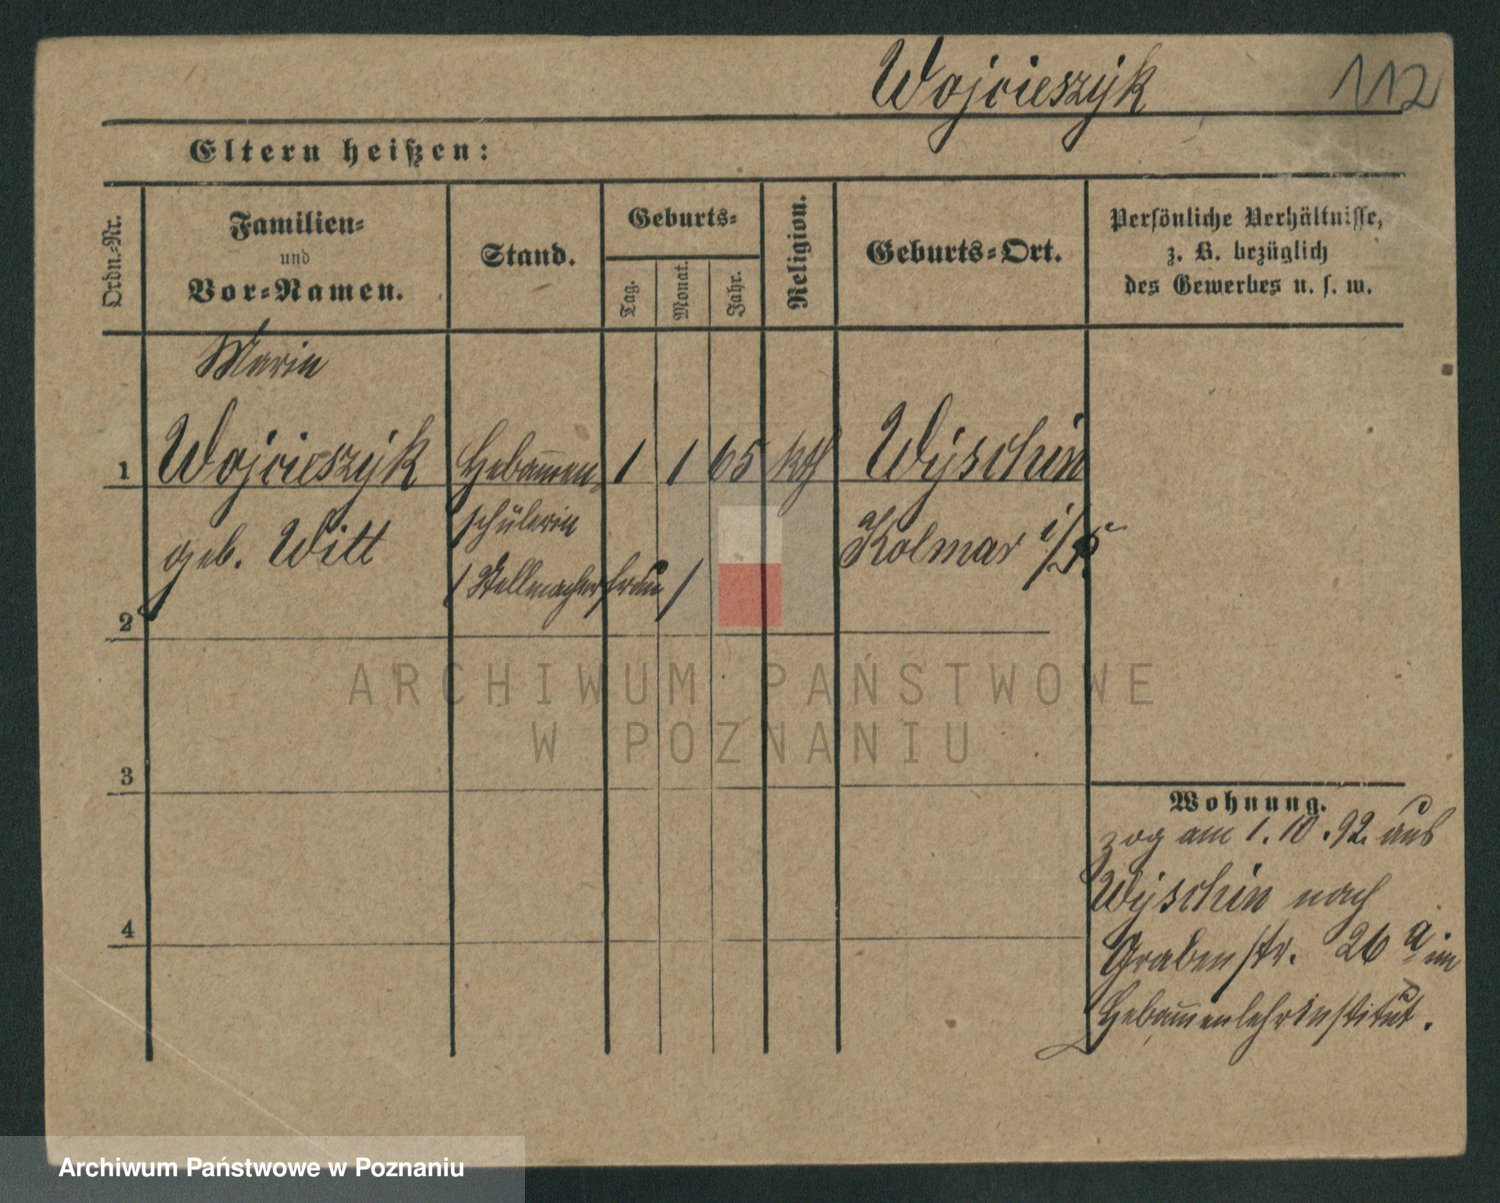 Wojcieszyk 112
Eltern heißen:
Ordn.-Nr.
Familien-
und
Vor-Namen.
Stand.
Geburts-
Tag.
Monat.
Jahr.
Religion.
Geburts-Ort.
Persönliche Verhältnisse,
z. B. bezüglich
des Gewerbes u. s. w.
Marie
1 Wojcieszyk Hebam̄en- 1 1 65 kth Wyschin
schülerin
geb. Witt Kolmar i/P.
/Stellmacherfrau/
2
ARCHIWUM PAŃSTWOWE
W POZNANIU
3
Wohnung.
zog am 1.10.92. aus
Wyschin nach
4
Grabenstr. 26 a im
Hebam̄enlehrinstitut.
Archiwum Państwowe w Poznaniu